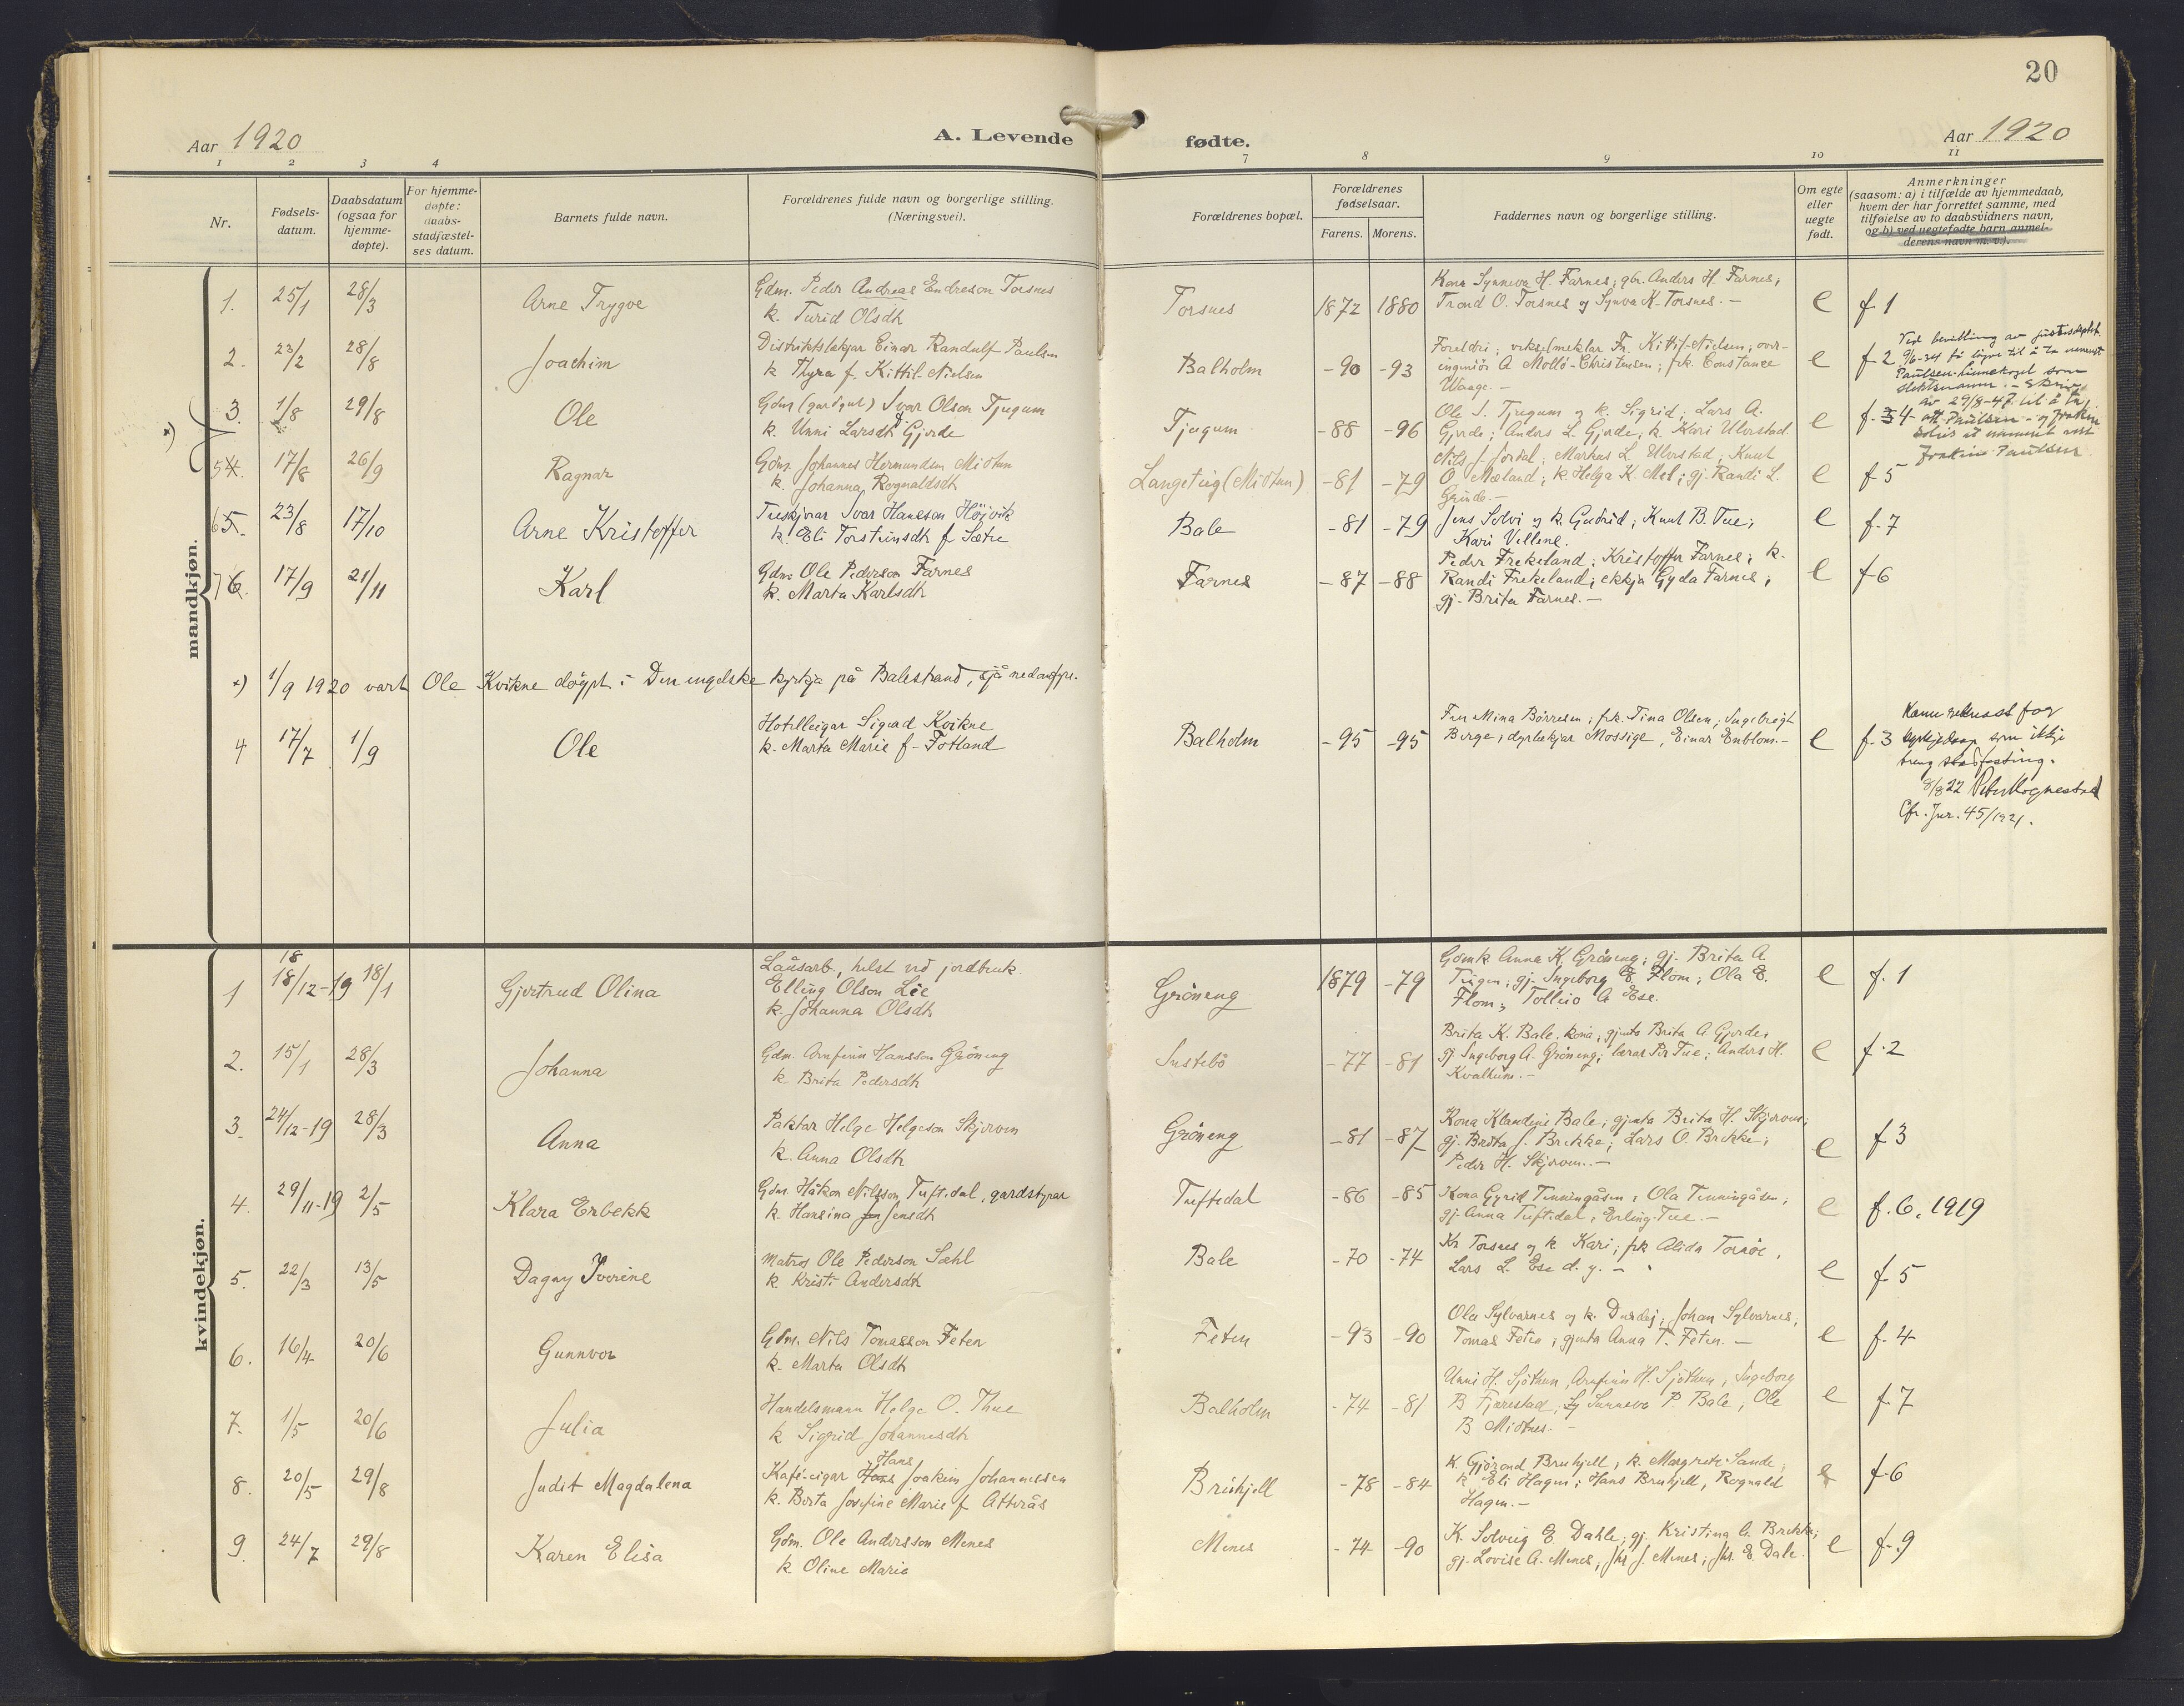 20
Aar 1920
A. Levende
fødte.
Aar 1920
1 2 3 4 7 8 9 10 11
Nr.
Fødsels-
datum.
Daabsdatum
(ogsaa for
hjemme-
døpte).
For hjemme-
døpte:
daabs-
stadfæstel-
ses datum.
Barnets fulde navn.
Forældrenes fulde navn og borgerlige stilling.
(Næringsvei).
Forældrenes bopæl.
Forældrenes
fødselsaar.
Farens. Morens.
Faddernes navn og borgerlige stilling.
Om egte
eller
uegte
født.
Anmerkninger
(saasom: a) i tilfælde av hjemmedaab,
hvem der har forrettet samme, med
tilføielse av to daabsvidners navn,
og b) ved uegtefødte barn anmel-
derens navn m. v.).
mandkjøn.
1. 25/1 28/3 Arne Trygve
Gdm. Peder Andreas Endreson Torsnes
k. Turid Olsdtr
Torsnes 1872 1880
Kona Synneva H. Farnes; gbr. Anders H. Farnes;
Trond O. Torsnes og Synva K. Torsnes. -
e f 1
2. 23/2 28/8 Joachim
Distriktslækjar Einar Randulf Paulsen
k Thyra f. Kittil-Nielsen
Balholm -90 -93
Foreldri; vekselmeklar Fr. Kittil-Nielsen; over-
ingeniör A Mollö-Christensen; frk. Constance
Waage. -
e f 2
Ved bevilling av justisdepts
9/6-34 få løyve til å ta
Paulsen som
slektsnamn. -
av 29/8-47 til å ta
3. 1/8 29/8 Ole
Gdm (gardgut) Ivar Olson Tjugum
k. Unni Larsdtr Gjerde
Tjugum -88 -96
Ole I. Tjugum og k. Sigrid; Lars A.
Gjerde; Anders L. Gjerde; k. Kari Ulvestad
e f. 3 4
5 4. 17/8 26/9 Ragnar
Gdm. Johannes Hermundsen Midtun
k. Johanna Rognaldsdtr
Langeteig (Midtun) -81 -79
Nils J. Jordal; Markus L Ulvestad; Knut
O. Mæland; k. Helga K. Mel; gj. Randi L.
Grinde. -
e f 5
6 5. 23/8 17/10 Arne Kristoffer
Treskjerar Ivar Hanson Höjvik
k. Eli Torsteinsdtr f Sætre
Bale -81 -79
Jens Solvi og k. Gudrid; Knut B. Tue;
Kari Vellene.
e f. 7
7 6. 17/9 21/11 Karl
Gdm. Ole Pederson Farnes
k. Marta Karlsdtr
Farnes -87 -88
Peder Frekeland; Kristoffer Farnes; k.
Randi Frekeland; ekkja Gyda Farnes;
gj. Brita Farnes. -
e f 6
x) 1/9 1920 vart Ole Kvikne döypt i Den engelske kyrkja på Balestrand, sjå nedanfyre.
4 17/7 1/9 Ole
Hotelleigar Sigurd Kvikne
k. Marta Marie f. Fotland
Balholm -95 -95
Fru Mina Börresen; frk. Tina Olsen; Ingebrigt
Berge; dyrlækjar Mossige, Einar Enblom. -
e f. 3
Kann reknast for
kyrkjedaap som ikkje
treng stadfesting.
8/8 22
Cfr. Jnr. 45/1921.
kvindekjøn.
1 18/12-19 18/1 Gjertrud Olina
Lausarb., helst ved jordbruk.
Elling Olson Lie
k. Johanna Olsdtr
Gröneng 1879 -79
Gdmk Anna K. Gröneng; gj. Brita A.
Tingen; gj. Ingeborg E. Flom; Ola E.
Flom; Tolleiv A Ese.
e f. 1
2. 15/1 28/3 Johanna
Gdm. Arnfinn Hansson Gröneng
k Brita Pedersdtr
Sustebö -77 -81
Brita K. Bale, kona; gjenta Brita A. Gjerde;
gj Ingeborg A. Gröneng; lærar Per Tue; Anders H.
Kvalheim. -
e f. 2
3. 24/12-19 28/3 Anna
Paktar Helge Helgeson Skjerven
k. Anna Olsdtr
Gröneng -81 -87
Kona Klaudine Bale; gjenta Brita H. Skjerven;
gj. Brita J. Brekke; Lars O. Brekke;
Peder H. Skjerven. -
e f 3
4. 29/11-19 2/5 Klara Erbekk
Gdm. Håkon Nilsson Tuftedal, gardstyrar
k. Hansina Jensdtr
Tuftedal -86 -85
Kona Gyrid Tenningåsen; Ola Tenningåsen;
gj. Anna Tuftedal; Erling Tue. -
e f. 6. 1919
5. 22/3 13/5 Dagny Iverine
Matros Ole Pederson Sæhl
k. Kristi Andersdtr
Bale -70 -74
Kr Torsnes og k Kari; frk Alida Torsöe,
Lars L. Ese d. y. -
e f. 5
6. 16/4 20/6 Gunnvor
Gdm. Nils Tomasson Feten
k. Marta Olsdtr
Feten -93 -90
Ola Sylvarnes og k. Durdej; Johan Sylvarnes,
Tomas Feten; gjenta Anna T. Feten. -
e f. 4
7. 1/5 20/6 Julia
Handelsmann Helge O. Thue
k Sigrid Johannesdtr
Balholm -74 -81
Unni H. Sjöthun, Arnfinn H. Sjöthun, Ingeborg
B Fjærestad; Sunneva P. Bale; Ole
B Midtnes. -
e f. 7
8. 20/5 29/8 Judit Magdalena
Hans
Kafé-eigar Hans Joakim Johannessen
k. Berta Josefine Marie f Atterås
Bruhjell -78 -84
k. Gjörond Bruhjell; k. Margrete Sande;
k Eli Hagen; Hans Bruhjell, Rognald
Hagen. -
e f. 6
9. 24/7 29/8 Karen Elisa
Gdm. Ole Andersson Menes
k Oline Marie
Menes -74 -90
K. Solveig E Dahle; gj. Kristina O. Brekke;
gj. Lovise A. Menes; Jhs J. Menes; Jhs. E. Dale.
e f. 9